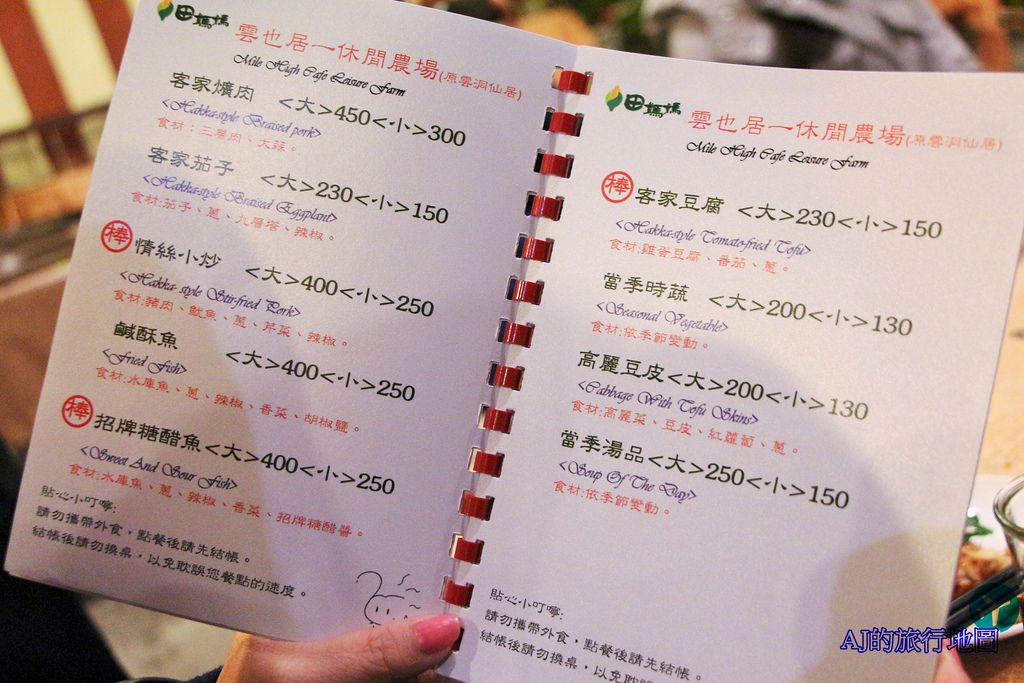 田媽媽 雲也居一休閒農場(原雲洞仙居)
Mile High Cafe Leisure Farm
客家爌肉 <大>450<小>300
<Hakka-style Braised pork>
食材：三層肉、大蒜。
客家茄子 <大>230<小>150
<Hakka-style Braised Eggplant>
食材:茄子、蔥、九層塔、辣椒。
棒 情絲小炒 <大>400<小>250
<Hakka-style Stir-fried Pork>
食材:豬肉、魷魚、蔥、芹菜、辣椒。
鹹酥魚 <大>400<小>250
<Fried Fish>
食材:水庫魚、蔥、辣椒、香菜、胡椒鹽。
棒 招牌糖醋魚<大>400<小>250
<Sweet And Sour Fish>
食材:水庫魚、蔥、辣椒、香菜、招牌糖醋醬。
貼心小叮嚀:
請勿攜帶外食，點餐後請先結帳。
結帳後請勿換桌，以免耽誤您餐點的速度。
田媽媽 雲也居一休閒農場(原雲洞仙居)
Mile High Cafe Leisure Farm
棒 客家豆腐 <大>230<小>150
<Hakka-style Tomato-fried Tofu>
食材:雞蛋豆腐、番茄、蔥。
當季時蔬 <大>200<小>130
<Seasonal Vegetable>
食材:依季節變動。
高麗豆皮<大>200<小>130
<Cabbage With Tofu Skins>
食材:高麗菜、豆皮、紅蘿蔔、蔥。
當季湯品<大>250<小>150
<Soup Of The Day>
食材:依季節變動。
貼心小叮嚀:
請勿攜帶外食，點餐後請先結帳。
結帳後請勿換桌，以免耽誤
AJ的旅行地圖